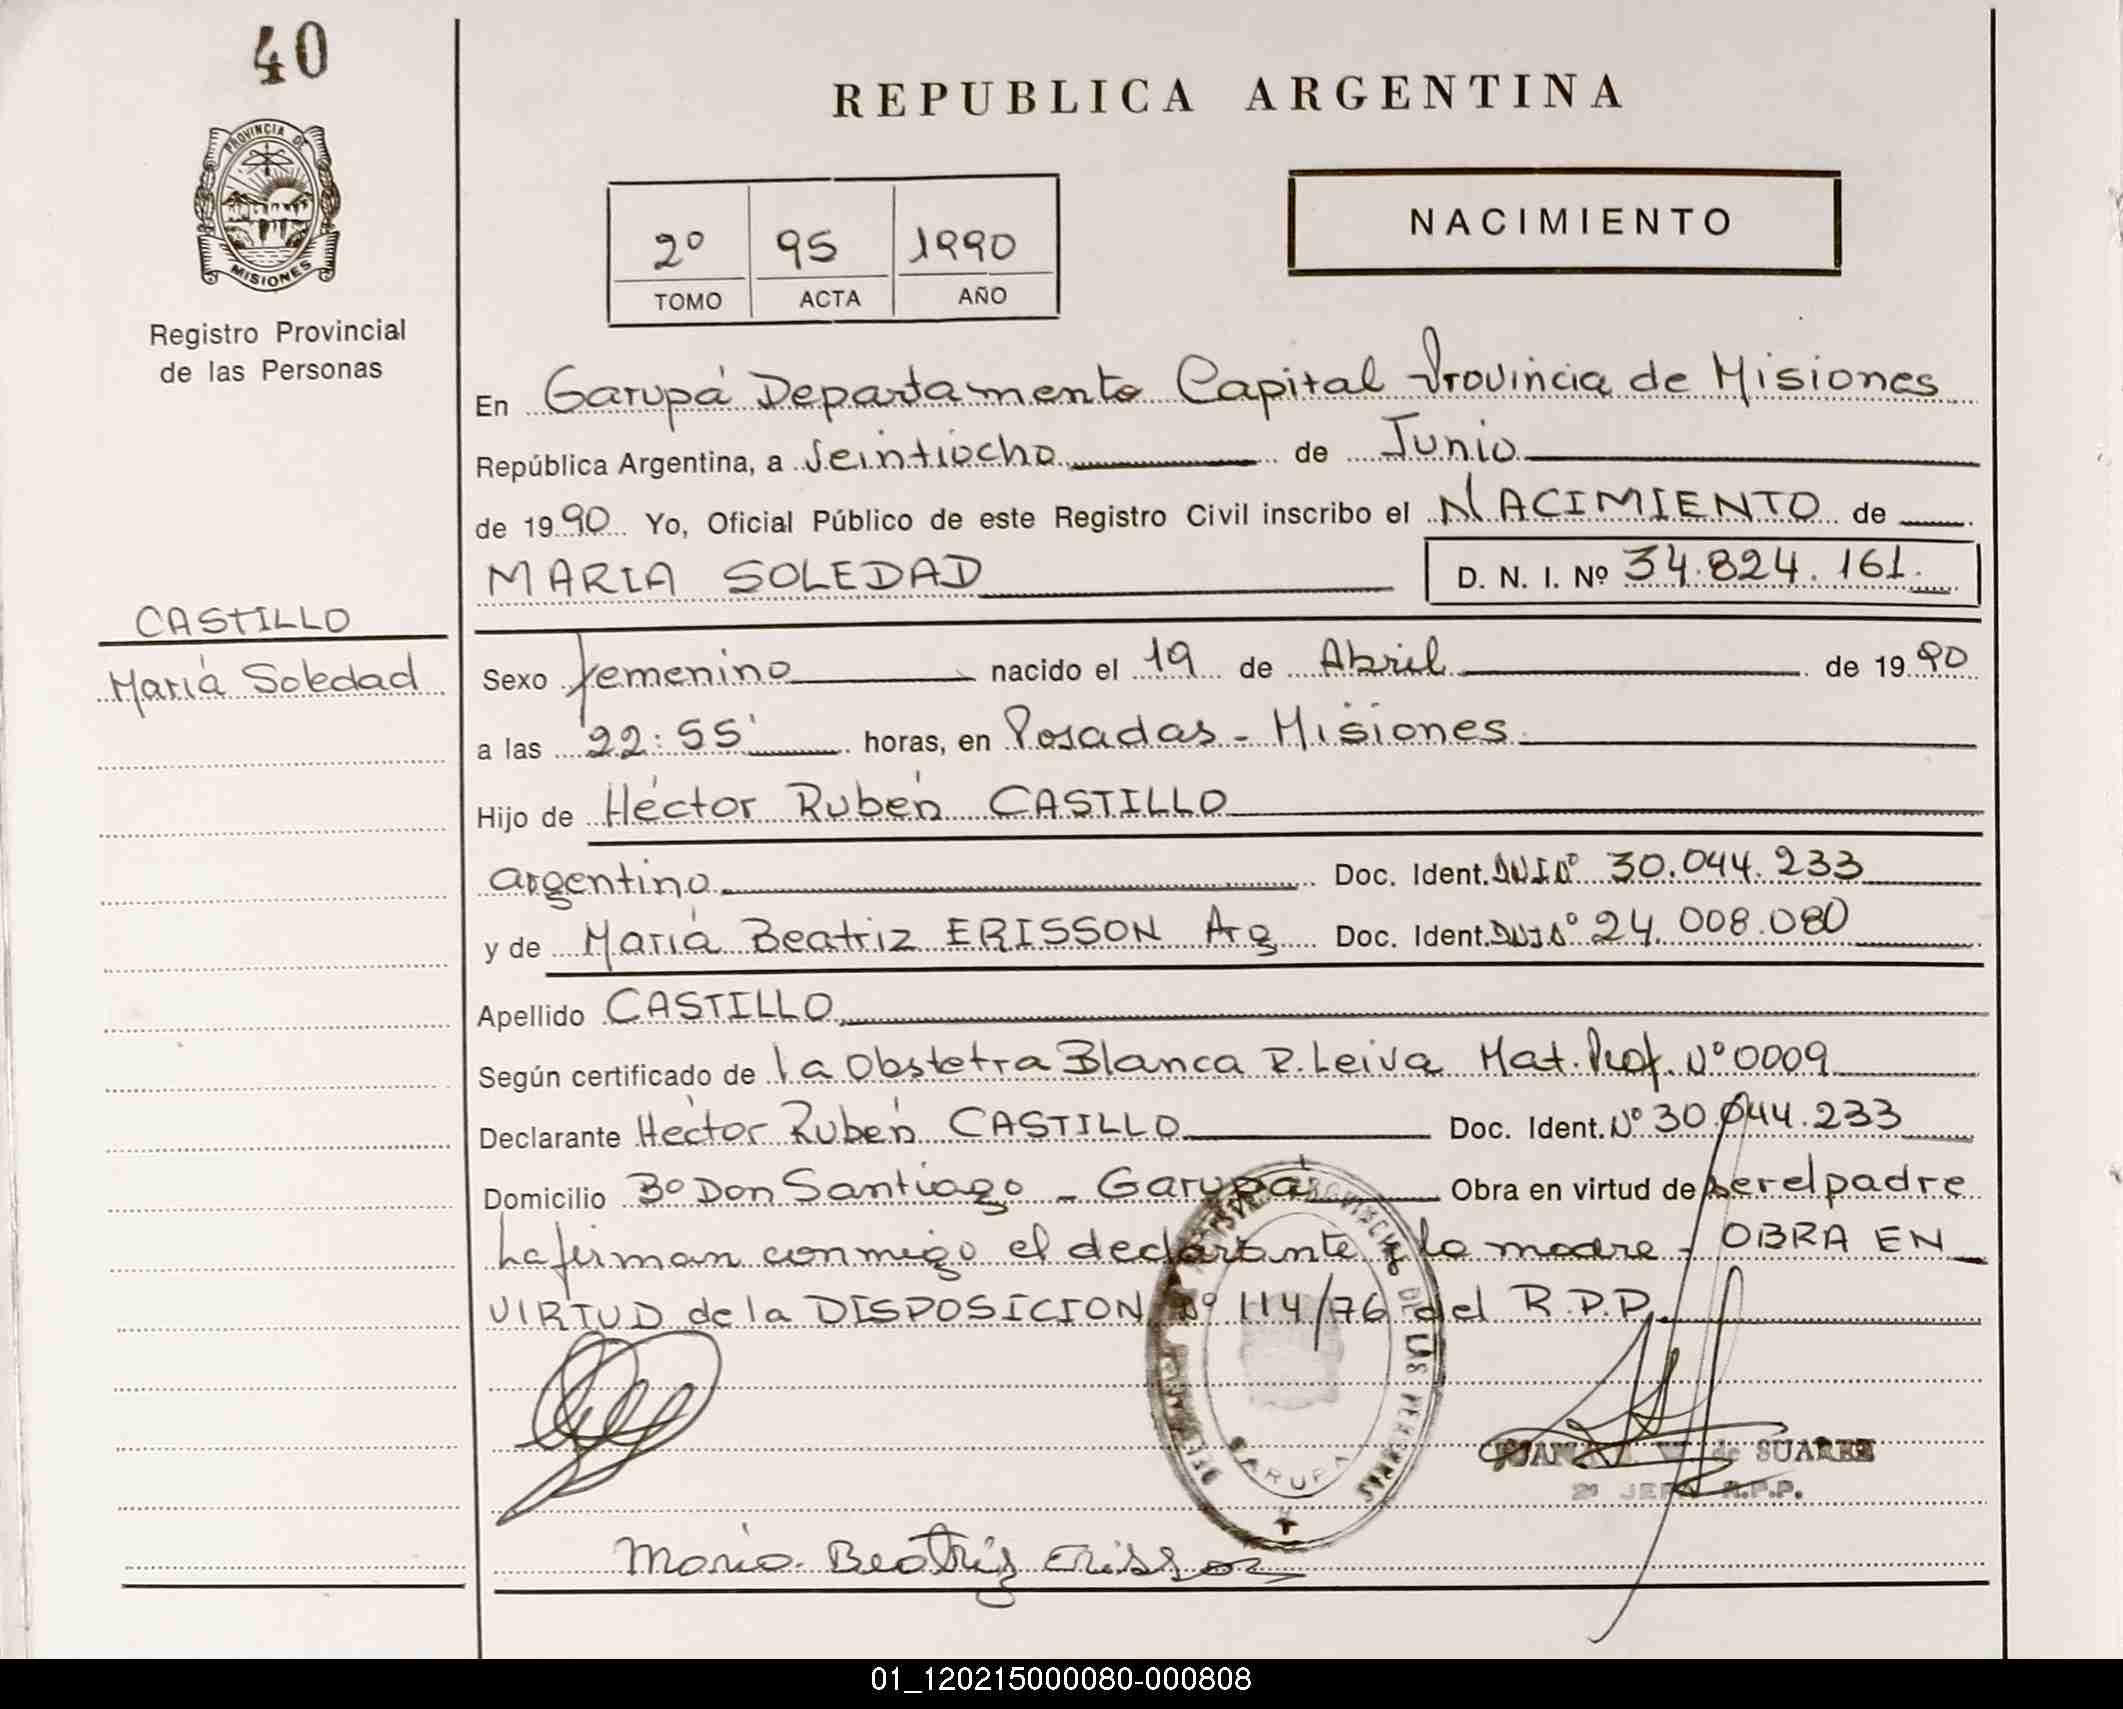 40
PROVINCIA DE
MISIONES
Registro Provincial
de las Personas
REPUBLICA ARGENTINA
2º 95 1990
TOMO ACTA AÑO
NACIMIENTO
En Garupá Departamento Capital Provincia de Misiones
República Argentina, a Veintiocho de Junio
de 1990 Yo, Oficial Público de este Registro Civil inscribo el NACIMIENTO de
MARIA SOLEDAD D. N. I. Nº 34.824.161.
CASTILLO
María Soledad
Sexo femenino nacido el 19 de Abril de 1990
a las 22:55' horas, en Posadas - Misiones
Hijo de Héctor Rubén CASTILLO
argentino Doc. Ident. DNI Nº 30.044.233
y de María Beatriz ERISSON Arg Doc. Ident. DNI Nº 24.008.080
Apellido CASTILLO
Según certificado de la Obstetra Blanca R. Leiva Mat. Prof. Nº 0009
Declarante Héctor Rubén CASTILLO Doc. Ident. Nº 30.044.233
Domicilio Bº Don Santiago - Garupá Obra en virtud de ser el padre
La firman conmigo el declarante y la madre - OBRA EN
VIRTUD de la DISPOSICION Nº 114/76 del R.P.P.
DE LAS PERSONAS
GARUPA
de SUAREZ
2º JEFE R.P.P.
Maria Beatriz Erisson
01_120215000080-000808